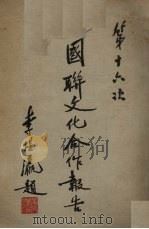 第十六次
國聯文化合作報告
李石曾題